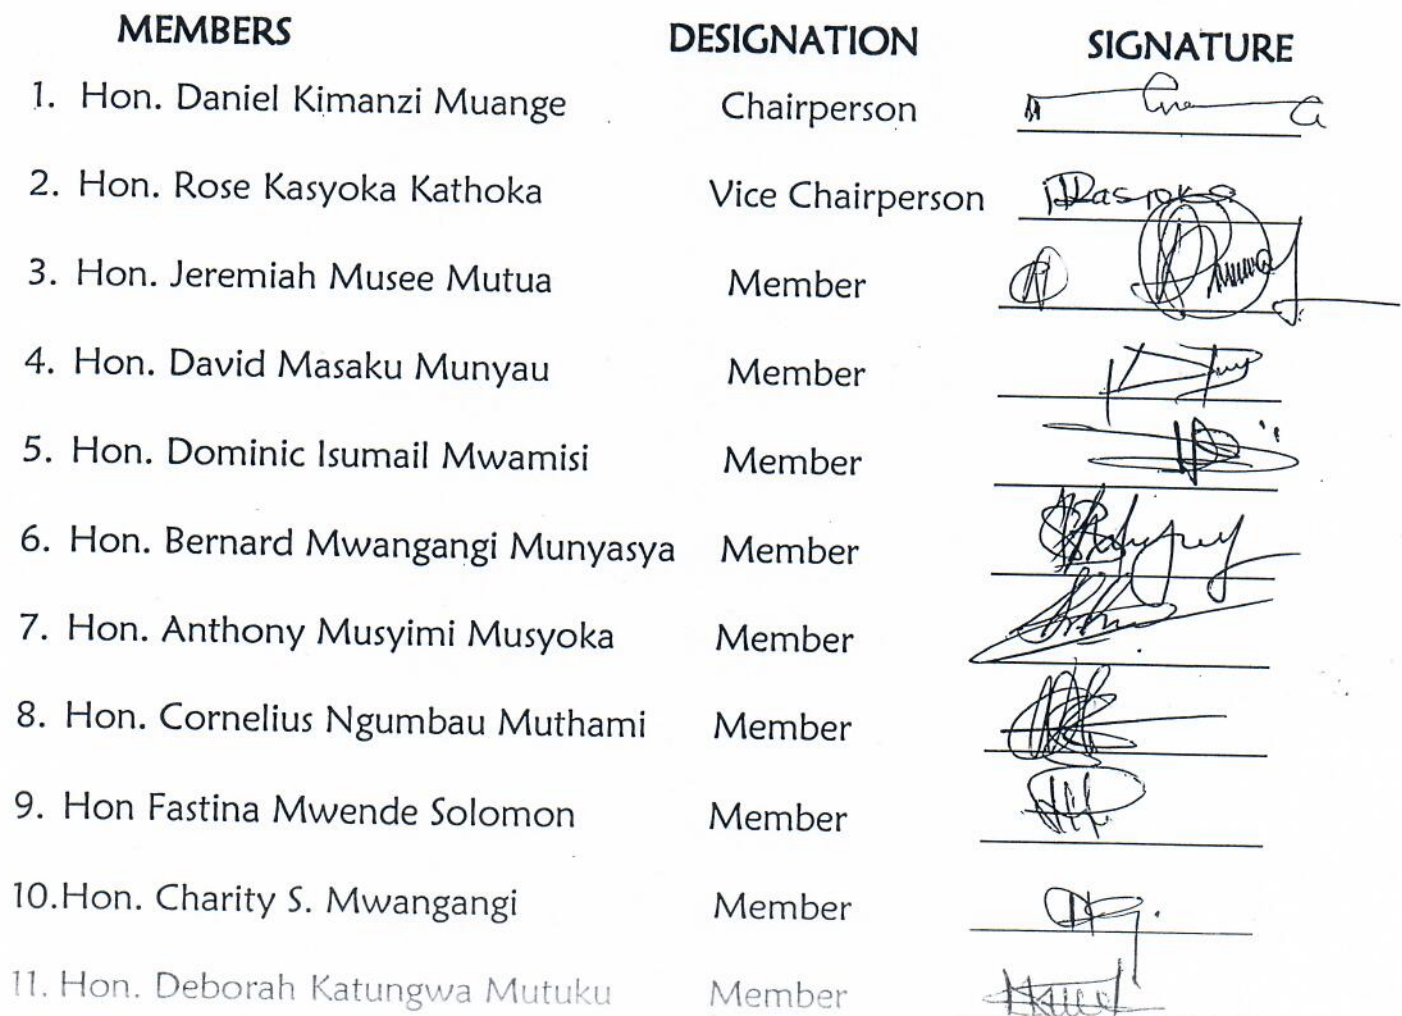 MEMBERS DESIGNATION SIGNATURE
1. Hon. Daniel Kimanzi Muange Chairperson
2. Hon. Rose Kasyoka Kathoka Vice Chairperson
3. Hon. Jeremiah Musee Mutua Member
4. Hon. David Masaku Munyau Member
5. Hon. Dominic Isumail Mwamisi Member
6. Hon. Bernard Mwangangi Munyasya Member
7. Hon. Anthony Musyimi Musyoka Member
8. Hon. Cornelius Ngumbau Muthami Member
9. Hon Fastina Mwende Solomon Member
10.Hon. Charity S. Mwangangi Member
11. Hon. Deborah Katungwa Mutuku Member